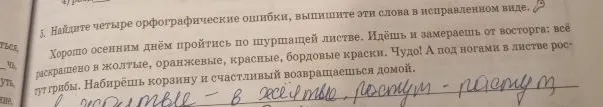 5. Найдите четыре орфографические ошибки, выпишите эти слова в исправленном виде.
Хорошо осенним днём пройтись по шуршащей листве. Идёшь и замераешь от восторга: всё
раскрашено в жолтые, оранжевые, красные, бордовые краски. Чудо! А под ногами в листве рос-
тут грибы. Набирёшь корзину и счастливый возвращаешься домой.
- в жёлтые, ростут - растут